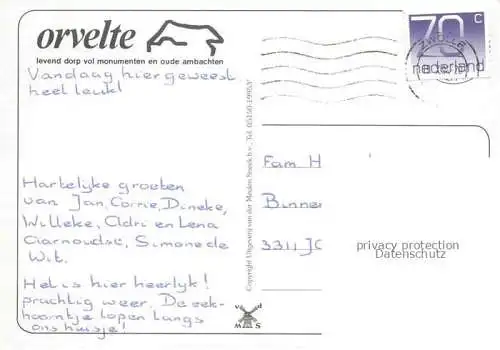 orvelte
levend dorp vol monumenten en oude ambachten
Vandaag hier geweest
heel leuk!
Hartelijke groeten
van Jan, Corrie, Dineke,
Willeke, Adri en Lena
Ciarnoudse, Simone de
Wit.
Het is hier heerlijk!
prachtig weer. De eek-
hoorntje lopen langs
ons huisje!
Copyright Uitgeverij van der Meulen Sneek b.v., Tel.
v d
M S
70 c
nederland
ZWOLLE
Fam H
Binner
3311 JC
privacy protection
Datenschutz